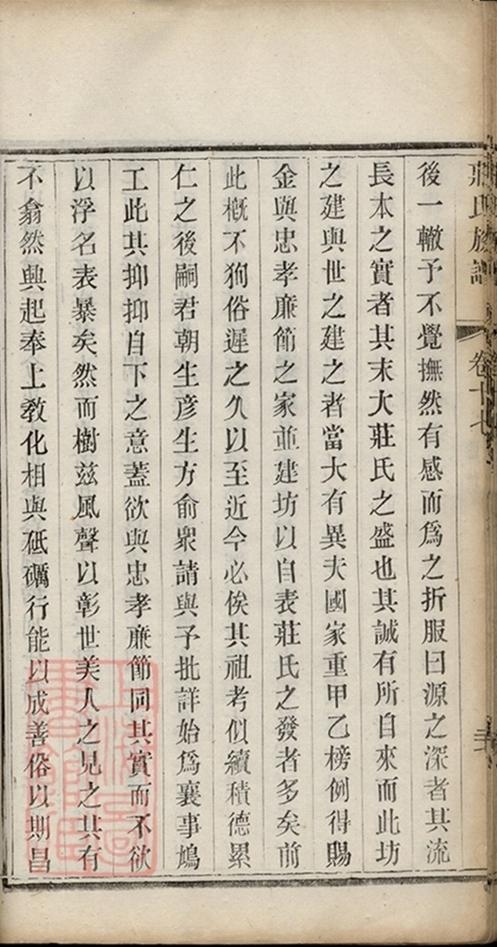 莊氏族譜 卷十七
後一轍予不覺撫然有感而爲之折服曰源之深者其流
長本之實者其末大莊氏之盛也其誠有所自來而此坊
之建與世之建之者當大有異夫國家重甲乙榜例得賜
金與忠孝廉節之家並建坊以自表莊氏之發者多矣前
此槪不狥俗遲之久以至近今必俟其祖考似續積德累
仁之後嗣君朝生彦生方俞衆請與予批詳始爲襄事鳩
工此其抑抑自下之意蓋欲與忠孝廉節同其實而不欲
以浮名表暴矣然而樹兹風聲以彰世美人之見之其有
不翕然興起奉上敎化相與砥礪行能以成善俗以期昌